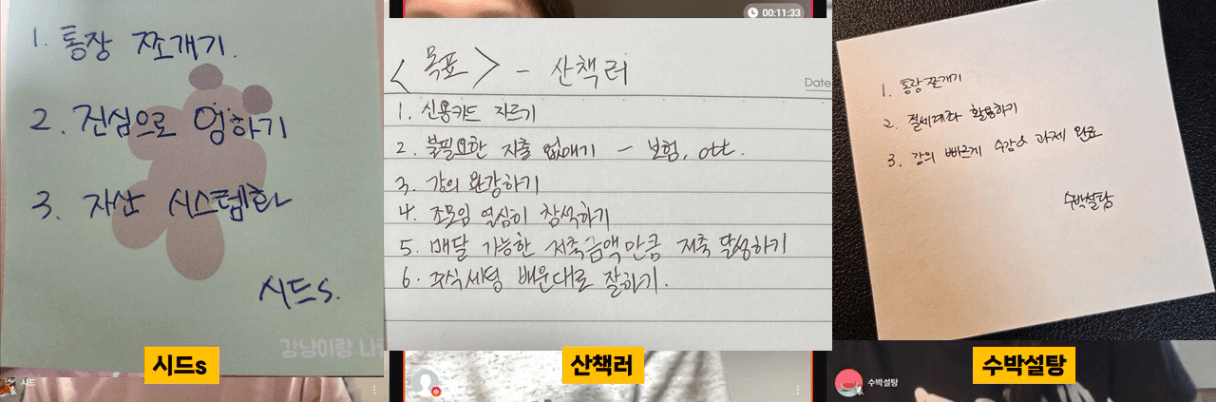 1. 통장 쪼개기.
2. 진심으로 임하기
3. 자산 시스템화
시드s.
강낭이랑 나
시드s
시드
00:11:33
<목표> - 산책러
Date
1. 신용카드 자르기
2. 불필요한 지출 없애기 - 보험, ott.
3. 강의 완강하기
4. 조모임 열심히 참석하기
5. 매달 가능한 저축금액만큼 저축 달성하기
6. 주식세팅 배운대로 잘하기.
산책러
1. 통장쪼개기
2. 절세계좌 활용하기
3. 강의 빠르게 수강& 과제 완료
수박설탕
수박설탕
수박설탕